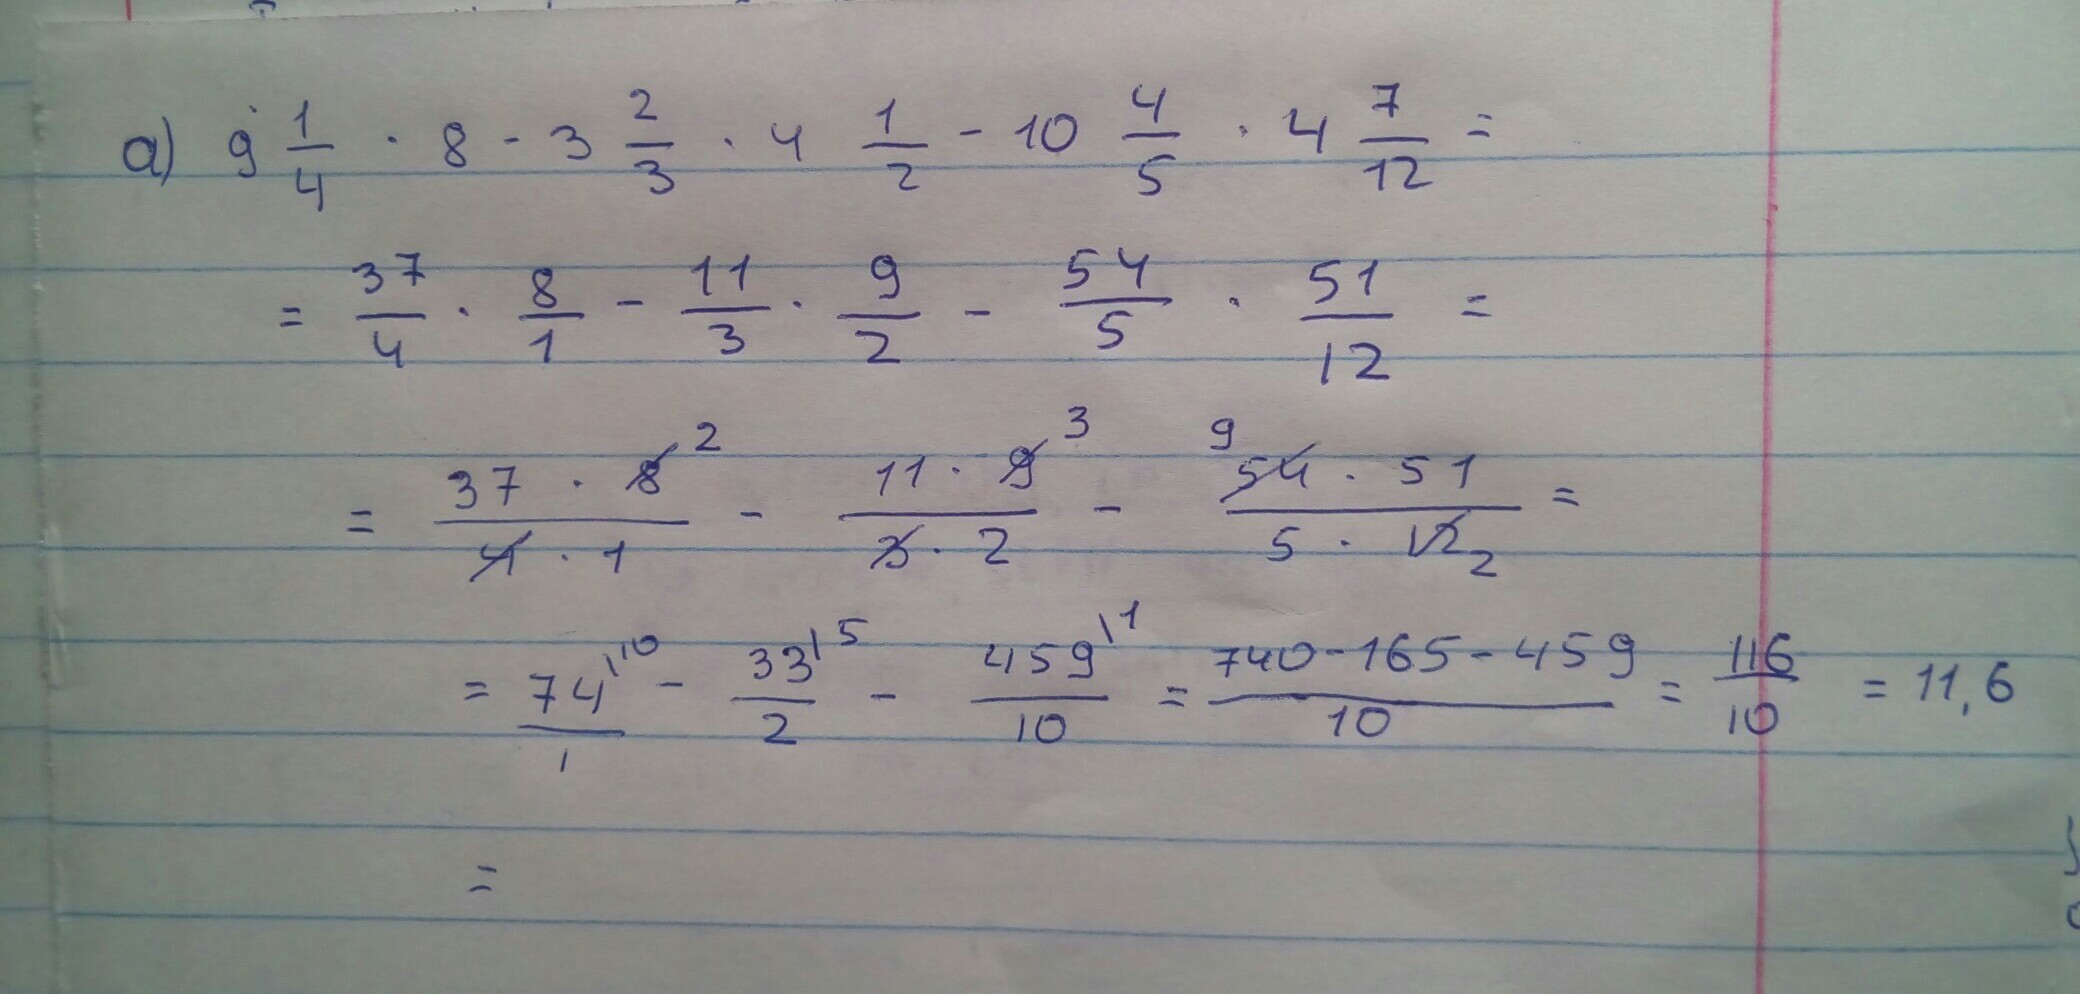 a) 9 1/4 · 8 - 3 2/3 · 4 1/2 - 10 4/5 · 4 7/12 =
= 37/4 · 8/1 - 11/3 · 9/2 - 54/5 · 51/12 =
= 37 · 8 2 / 4 · 1 - 11 · 9 3 / 3 · 2 - 9 54 · 51 / 5 · 12 2 =
= 74 \10 / 1 - 33 \5 / 2 - 459 \1 / 10 = 740-165-459 / 10 = 116/10 = 11,6
=